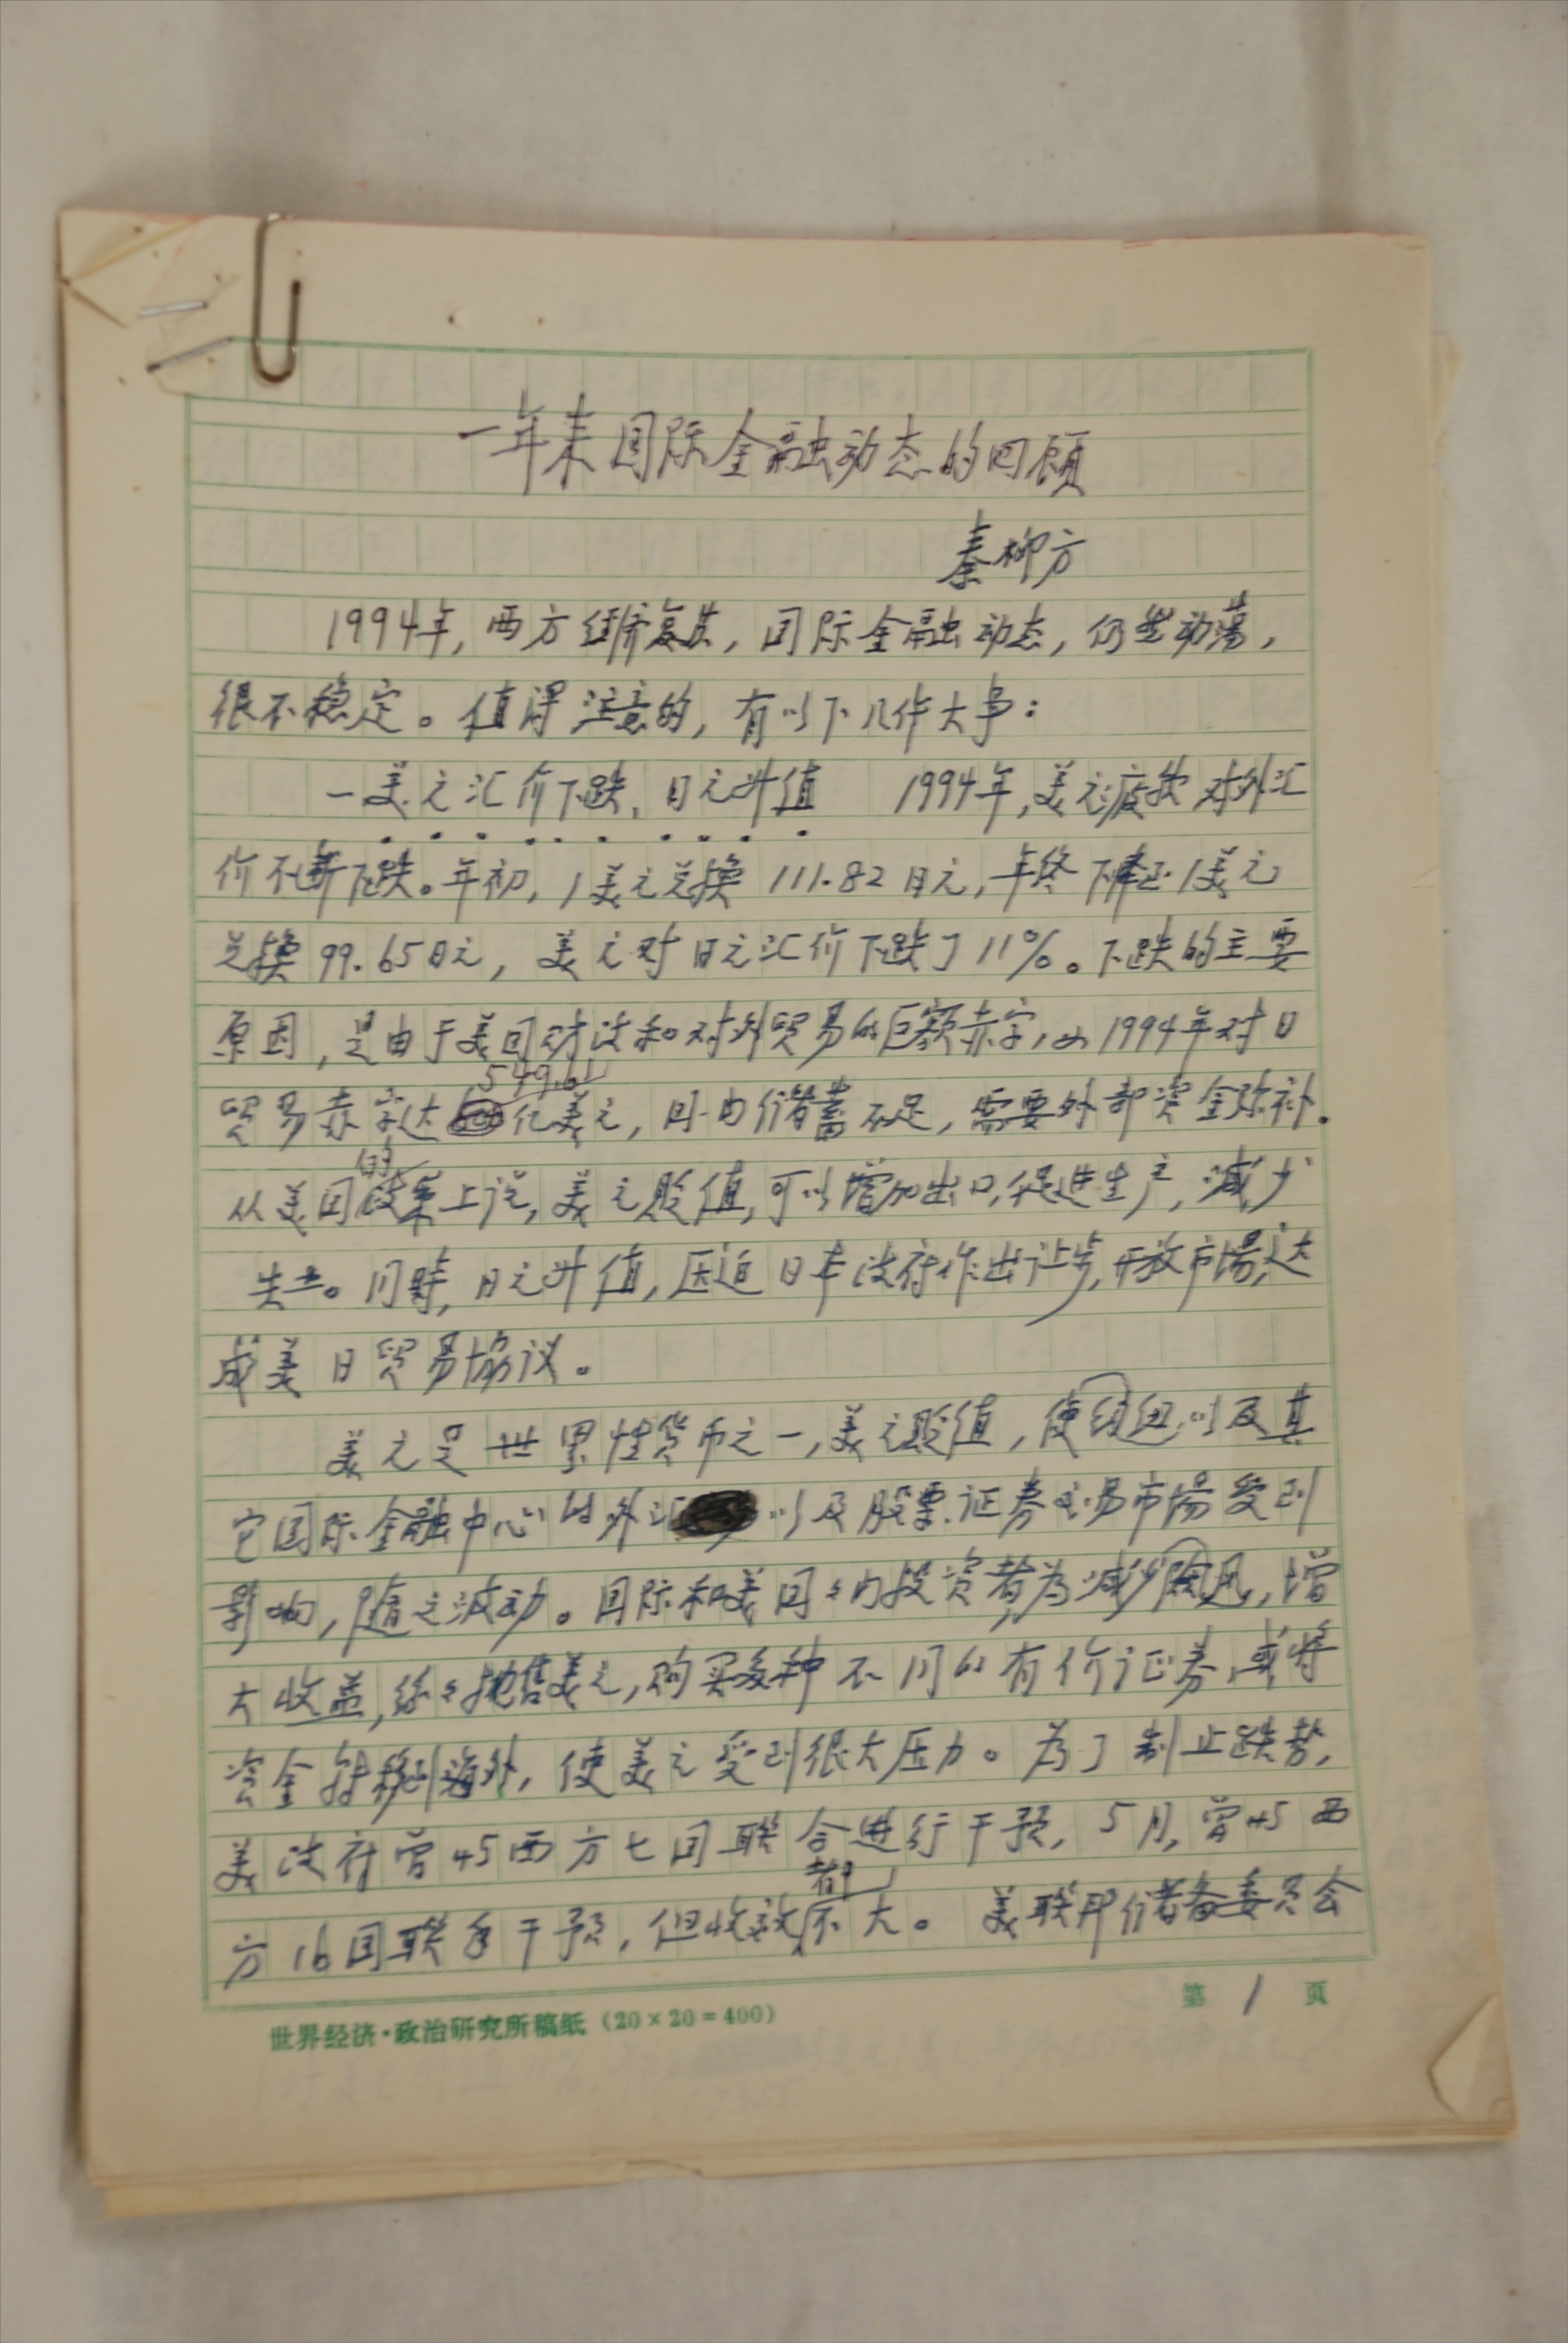 一年来国际金融动态的回顾
秦柳方
1994年，西方经济复苏，国际金融动态，仍然动荡，
很不稳定。值得注意的，有以下几件大事：
一美元汇价下跌，日元升值　1994年，美元疲软，对外汇
价不断下跌。年初，1美元兑换111.82日元，年终下降至1美元
兑换99.65日元，美元对日元汇价下跌了11%。下跌的主要
原因，是由于美国财政和对外贸易的巨额赤字，如1994年对日
549.6
贸易赤字达亿美元，国内储蓄不足，需要外部资金弥补。
的
从美国政策上说，美元贬值，可以增加出口，促进生产，减少
失业。同时，日元升值，压迫日本政府作出让步，开放市场，达
成美日贸易协议。
美元是世界性货币之一，美元贬值，使纽约以及其
它国际金融中心的外汇以及股票、证券交易市场受到
影响，随之波动。国际和美国国内投资者，为减少风险，增
大收益，纷纷抛售美元，购买多种不同的有价证券，或将
资金转移到海外，使美元受到很大压力。为了制止跌势，
美政府曾与西方七国联合进行干预，5月，曾与西
都
方16国联手干预，但收效不大。美联邦储备委员会
世界经济·政治研究所稿纸（20×20=400）
第 1 页